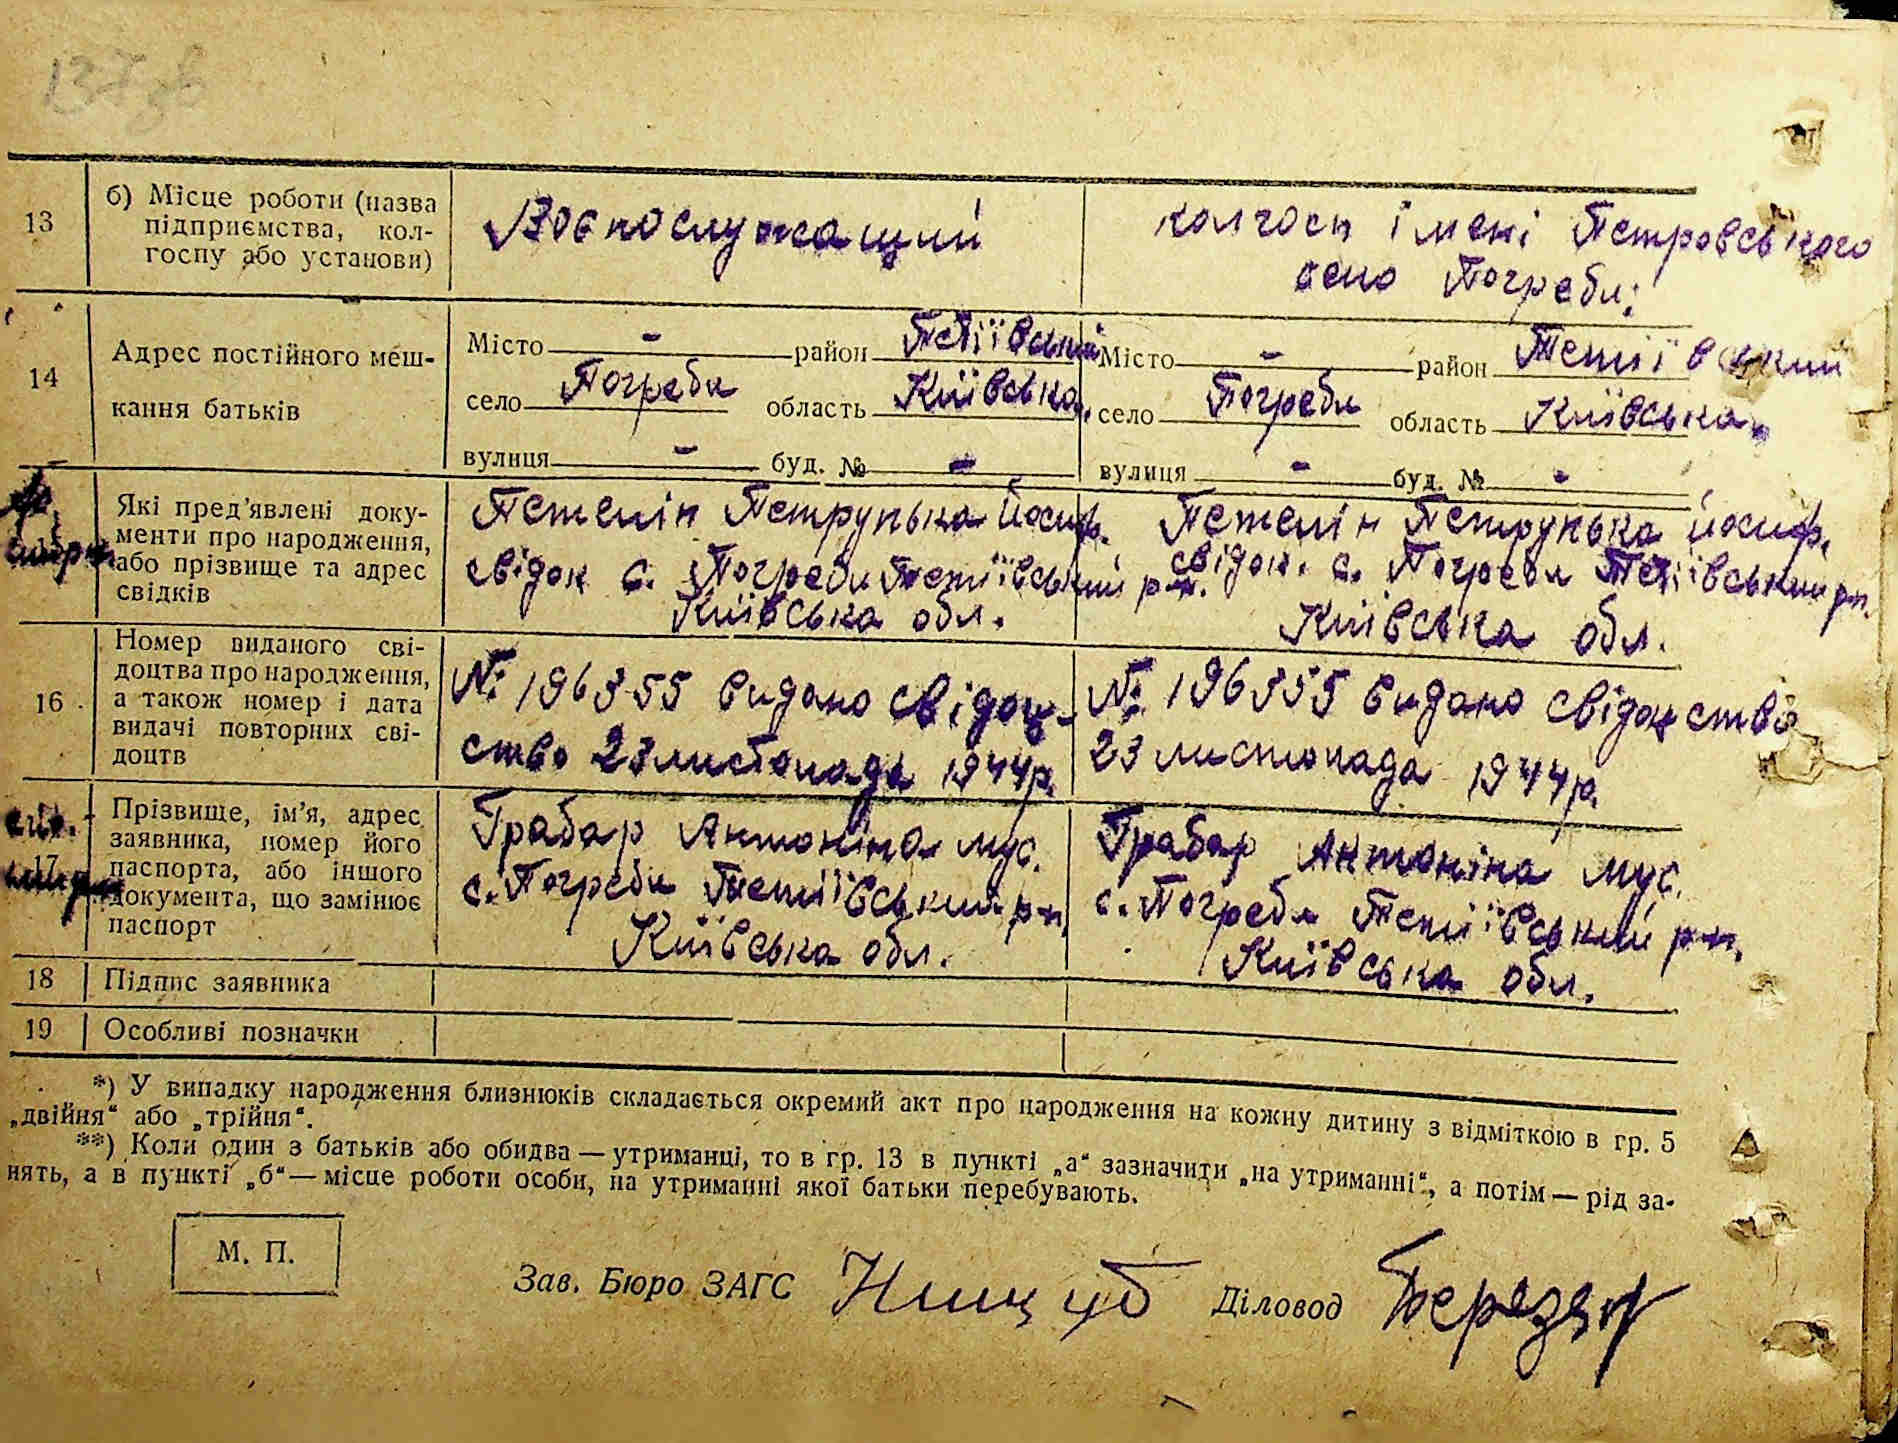 137 зв
13
б) Місце роботи (назва
підприємства, кол-
госпу або установи)
Воєнослужащий
колгосп імені Петровського
село Погреби;
14
Адрес постійного меш-
кання батьків
Місто - район Тетіївський
село Погреби область Київська.
вулиця - буд. № -
Місто - район Тетіївський
село Погреби область Київська.
вулиця - буд. № -
Які пред'явлені доку-
менти про народження,
або прізвище та адрес
свідків
Петрунька Йосиф.
свідок с. Погреби Тетіївський р-н.
Київська обл.
Петрунька Йосиф.
свідок. с. Погреби Тетіївський р-н.
Київська обл.
16
Номер виданого сві-
доцтва про народження,
а також номер і дата
видачі повторних сві-
доцтв
№ 196355 видано свідоц-
ство 23 листопада 1944р.
№ 196355 видано свідоцство
23 листопада 1944р.
17
Прізвище, ім'я, адрес
заявника, номер його
паспорта, або іншого
документа, що замінює
паспорт
Грабар Антоніна мус.
с. Погреби Тетіївський р-н,
Київська обл.
Грабар Антоніна мус.
с. Погреби Тетіївський р-н,
Київська обл.
18 Підпис заявника
19 Особливі позначки
*) У випадку народження близнюків складається окремий акт про народження на кожну дитину з відміткою в гр. 5
„двійня“ або „трійня“.
**) Коли один з батьків або обидва — утриманці, то в гр. 13 в пункті „а“ зазначити „на утриманні“, а потім — рід за-
нять, а в пункті „б“ — місце роботи особи, на утриманні якої батьки перебувають.
М. П.
Зав. Бюро ЗАГС
Діловод